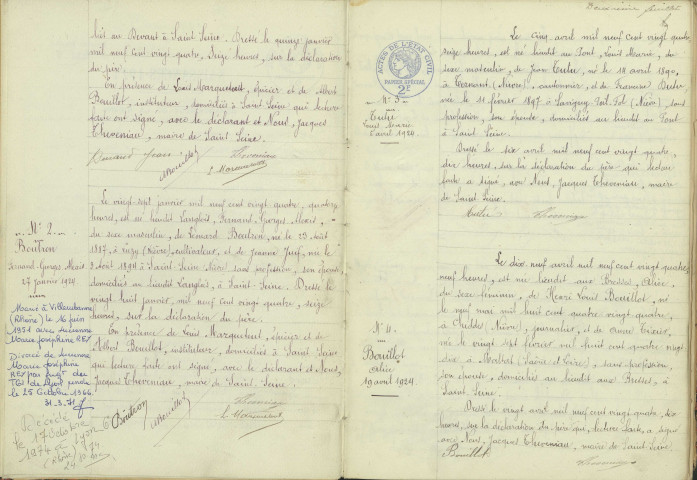 lieu au Devant à Saint Seine. Dressé le quinze janvier
mil neuf cent vingt quatre, seize heures, sur la déclaration
du père.
En présence de Louis Marqueteut, épicier et de Albert
Bouillot, instituteur, domiciliés à Saint Seine qui lecture
faite ont signé, avec le déclarant et Nous, Jacques
Theveniau, maire de Saint Seine.
ABouillot
Theveniau
N° 2
Boutron
Fernand Georges Alexis
27 janvier 1924
Marié à Villeurbanne
(Rhône) le 16 juin
1951 avec Lucienne
Marie Joséphine REY
Divorcé de Lucienne
Marie Joséphine
REY par jugt du
TGI de Lyon rendu
le 25 Octobre 1966.
31.3.71
Décédé
le 17 octobre
1974 à Lyon 6
(Rhône)
Le vingt sept janvier mil neuf cent vingt quatre, quatre
heures, est né lieudit Langlois, Fernand, Georges Alexis,
du sexe masculin, de Léonard Boutron, né le 23 août
1887, à Luzy (Nièvre), cultivateur, et de Jeanne
à Saint Seine Nièvre sans profession, son épouse,
domiciliés au lieudit Langlois, à Saint Seine. Dressé le
vingt huit janvier, mil neuf cent vingt quatre, seize
heures, sur la déclaration du père.
En présence de Louis Marqueteut, épicier et de
Albert Bouillot, instituteur, domiciliés à Saint Seine
qui lecture faite ont signé, avec le déclarant et Nous,
Jacques Theveniau, maire de Saint Seine.
Boutron
ABouillot
Theveniau
ACTES DE L'ÉTAT CIVIL
PAPIER SPÉCIAL
2F
N° 3
5 avril 1924
Le cinq avril mil neuf cent vingt quatre,
seize heures, est né lieudit au Pont, Louis Marie, du
sexe masculin, de Jean
cantonnier, et de Françoise
née le 21 février 1897 à Savigny Poil Fol (Nièvre), sans
profession, son épouse, domiciliés au lieudit au Pont
à Saint Seine.
Dressé le six avril mil neuf cent vingt quatre,
dix heures, sur la déclaration du père qui lecture
faite a signé, avec Nous, Jacques Theveniau, maire
de Saint Seine.
Theveniau
N° 4
Bouillot
Alice
19 avril 1924
Le dix neuf avril mil neuf cent vingt quatre
neuf heures, est née lieudit aux Brosses, Alice,
du sexe féminin, de Henri Louis Bouillot, né
le neuf mai mil huit cent quatre vingt quatre,
journalier, et de Anne
née le vingt sept février mil huit cent quatre vingt
dix à Maltat (Saône et Loire), sans profession,
son épouse, domiciliés au lieudit aux Brosses à
Saint Seine.
Dressé le vingt avril mil neuf cent vingt quatre, dix
heures, sur la déclaration du père qui, lecture faite, a signé
avec Nous, Jacques Theveniau, maire de Saint Seine.
Bouillot
Theveniau